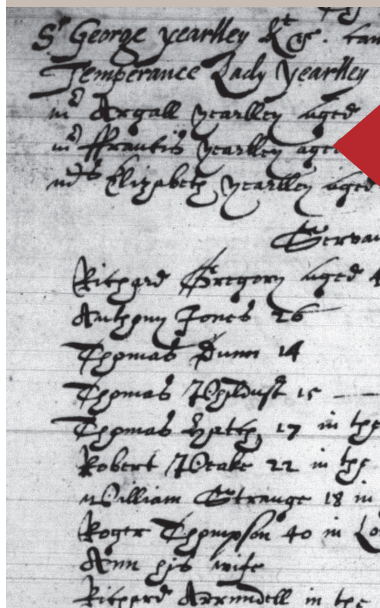 Sr George Yearlley &c. cam
Temperance Lady Yearlley
mr Argall Yearlley aged
mr ffrancis Yearlley aged
mrs Elizabeth Yearlley aged
Servan
Richard Gregory aged 4
Anthony Jones 26
Thomas Dunn 14
Thomas Wyldust 15 —
Thomas Hatch 17 in the
Robert Peake 22 in the
William Strange 18 in
Roger Thompson 40 in Lo
Ann his wife
Richard Arrundell in the